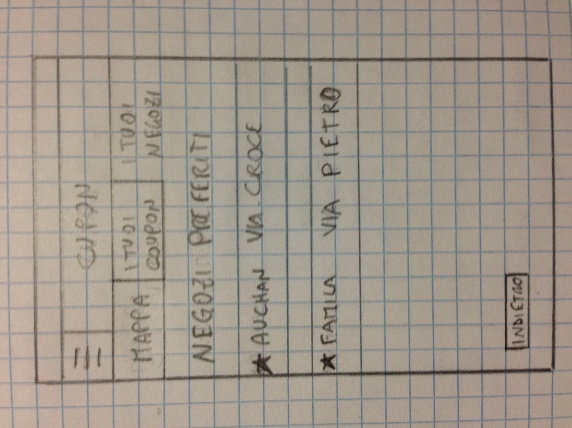 COUPON
MAPPA
I TUOI
COUPON
I TUOI
NEGOZI
NEGOZI PREFERITI
★ AUCHAN VIA CROCE
★ FAMILA VIA PIETRO
INDIETRO